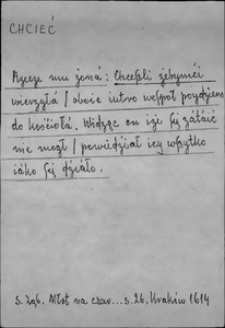 CHCIEĆ
Rzecze mu żoná: Chceszli żebymći
wierzyłá / oboie iutro wespoł poydźiem
do kośćiołá. Widząc on iże się zátáić
nie mogł / powiedźiał iey wszytko
iáko się dźiało.
S. Ząb. Młot na czar... s. 26, Kraków 1614